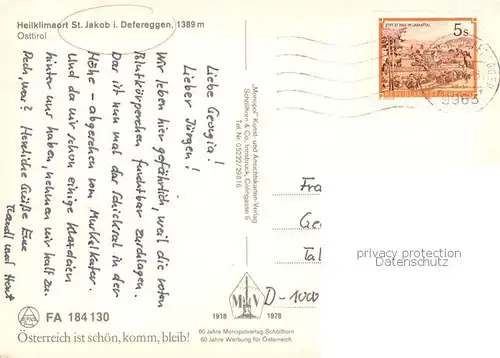 Heilklimaort St. Jakob i. Defereggen, 1389 m
Osttirol
Liebe Georgia!
Lieber Jürgen!
Wir leben hier gefährlich, weil die roten
Blutkörperchen furchtbar zuschlagen.
Das ist nun mal das Schicksal in der
Höhe - abgesehen vom Muskelkater.
Und da wir schon einige Klapdaien
hinter uns haben, nehmen wir halt zu.
Pech, was? Herzliche Grüße Eure
und Horst
„Monopol" Kunst- und Ansichtskarten-Verlag
Schöllhorn & Co, Innsbruck, Colingasse 6
Tel. Nr. 05222/29816
5s
STIFT ST. PAUL IM LAVANTTAL
REPUBLIK ÖSTERREICH
9963
Fra
Ge
Tal
D-1000
privacy protection
Datenschutz
MV
1918 1978
60 Jahre Monopolverlag Schöllhorn
60 Jahre Werbung für Österreich
FA 184 130
Österreich ist schön, komm, bleib!